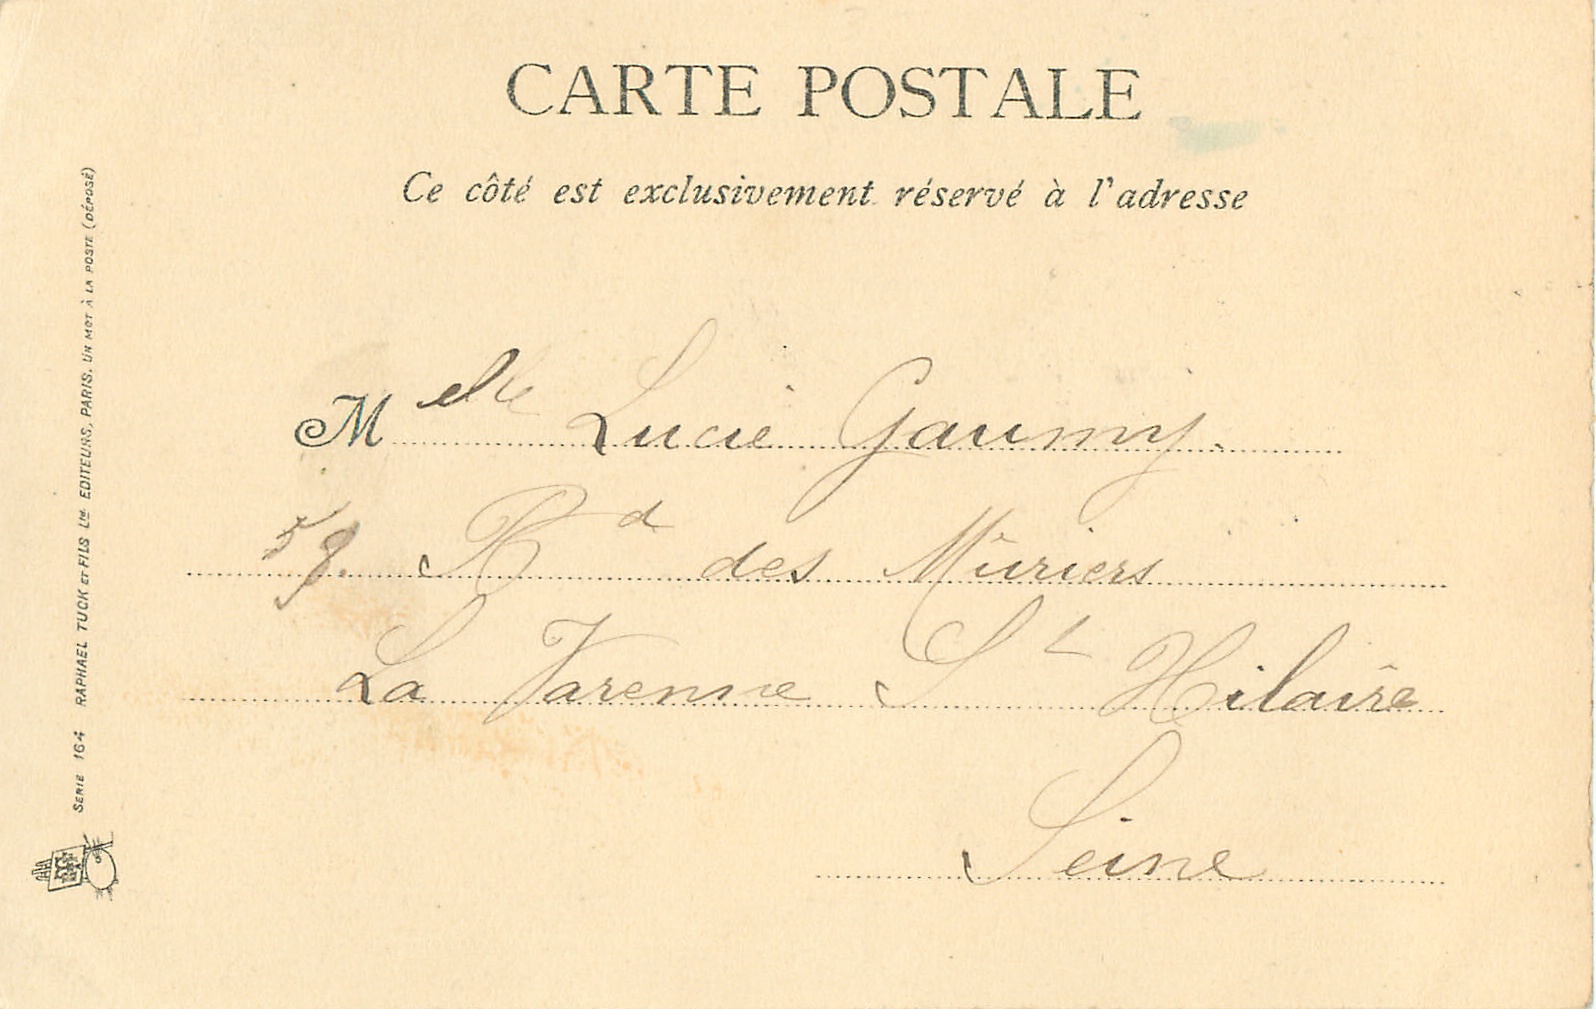 CARTE POSTALE
Ce côté est exclusivement réservé à l'adresse
Melle Lucie Gaumy.
59. Bd des Mûriers
La Varenne St Hilaire
Seine
SERIE 164 RAPHAEL TUCK ET FILS Ltd EDITEURS, PARIS. UN MOT À LA POSTE (DÉPOSÉ)